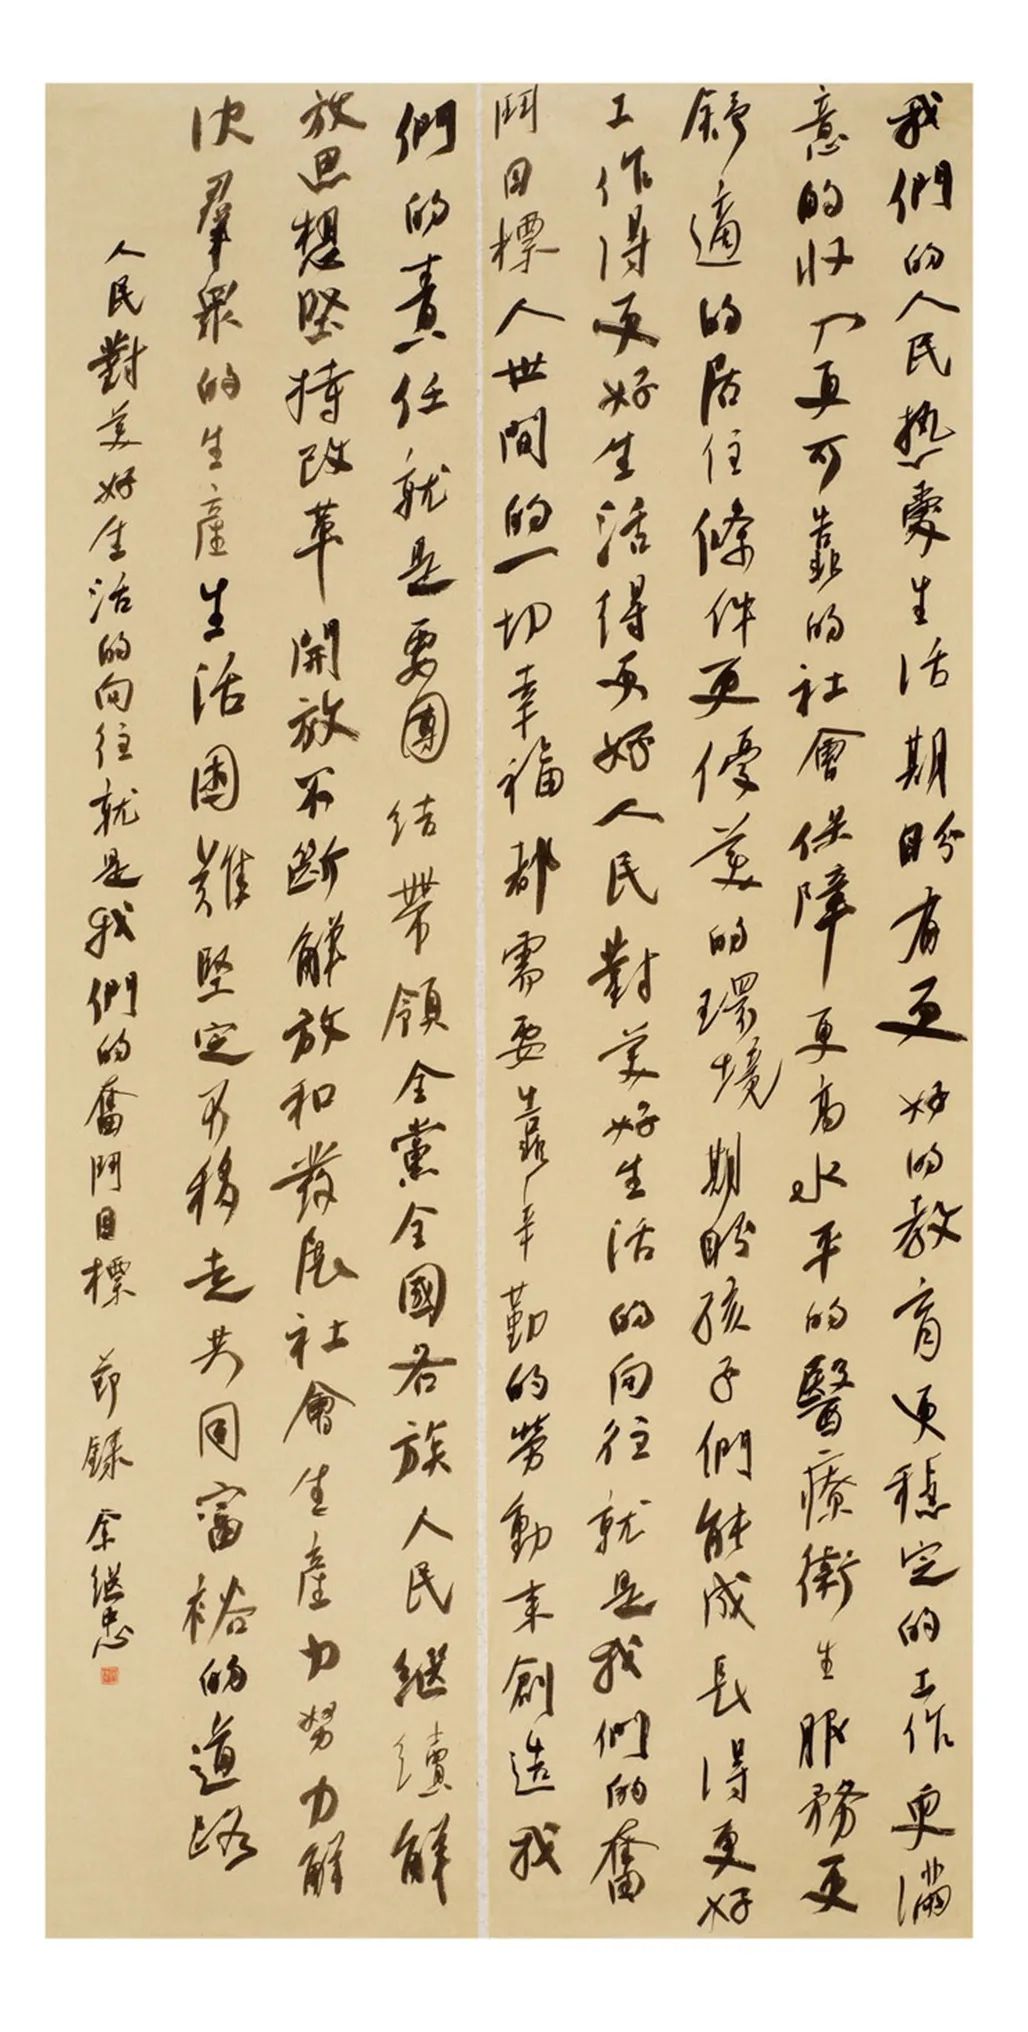 我們的人民热愛生活期盼有更好的教育更穩定的工作更滿
意的收入更可靠的社會保障更高水平的醫療衛生服務更
舒適的居住條件更優美的環境期盼孩子們能成長得更好
工作得更好生活得更好人民對美好生活的向往就是我們的奮
鬥目標人世間的一切幸福都需要靠辛勤的勞動来創造我
們的責任就是要團结帶領全黨全國各族人民继續解
放思想堅持改革開放不断解放和發展社會生產力努力解
决羣眾的生產生活困難堅定不移走共同富裕的道路
人民對美好生活的向往就是我們的奮鬥目標 節錄 余继忠